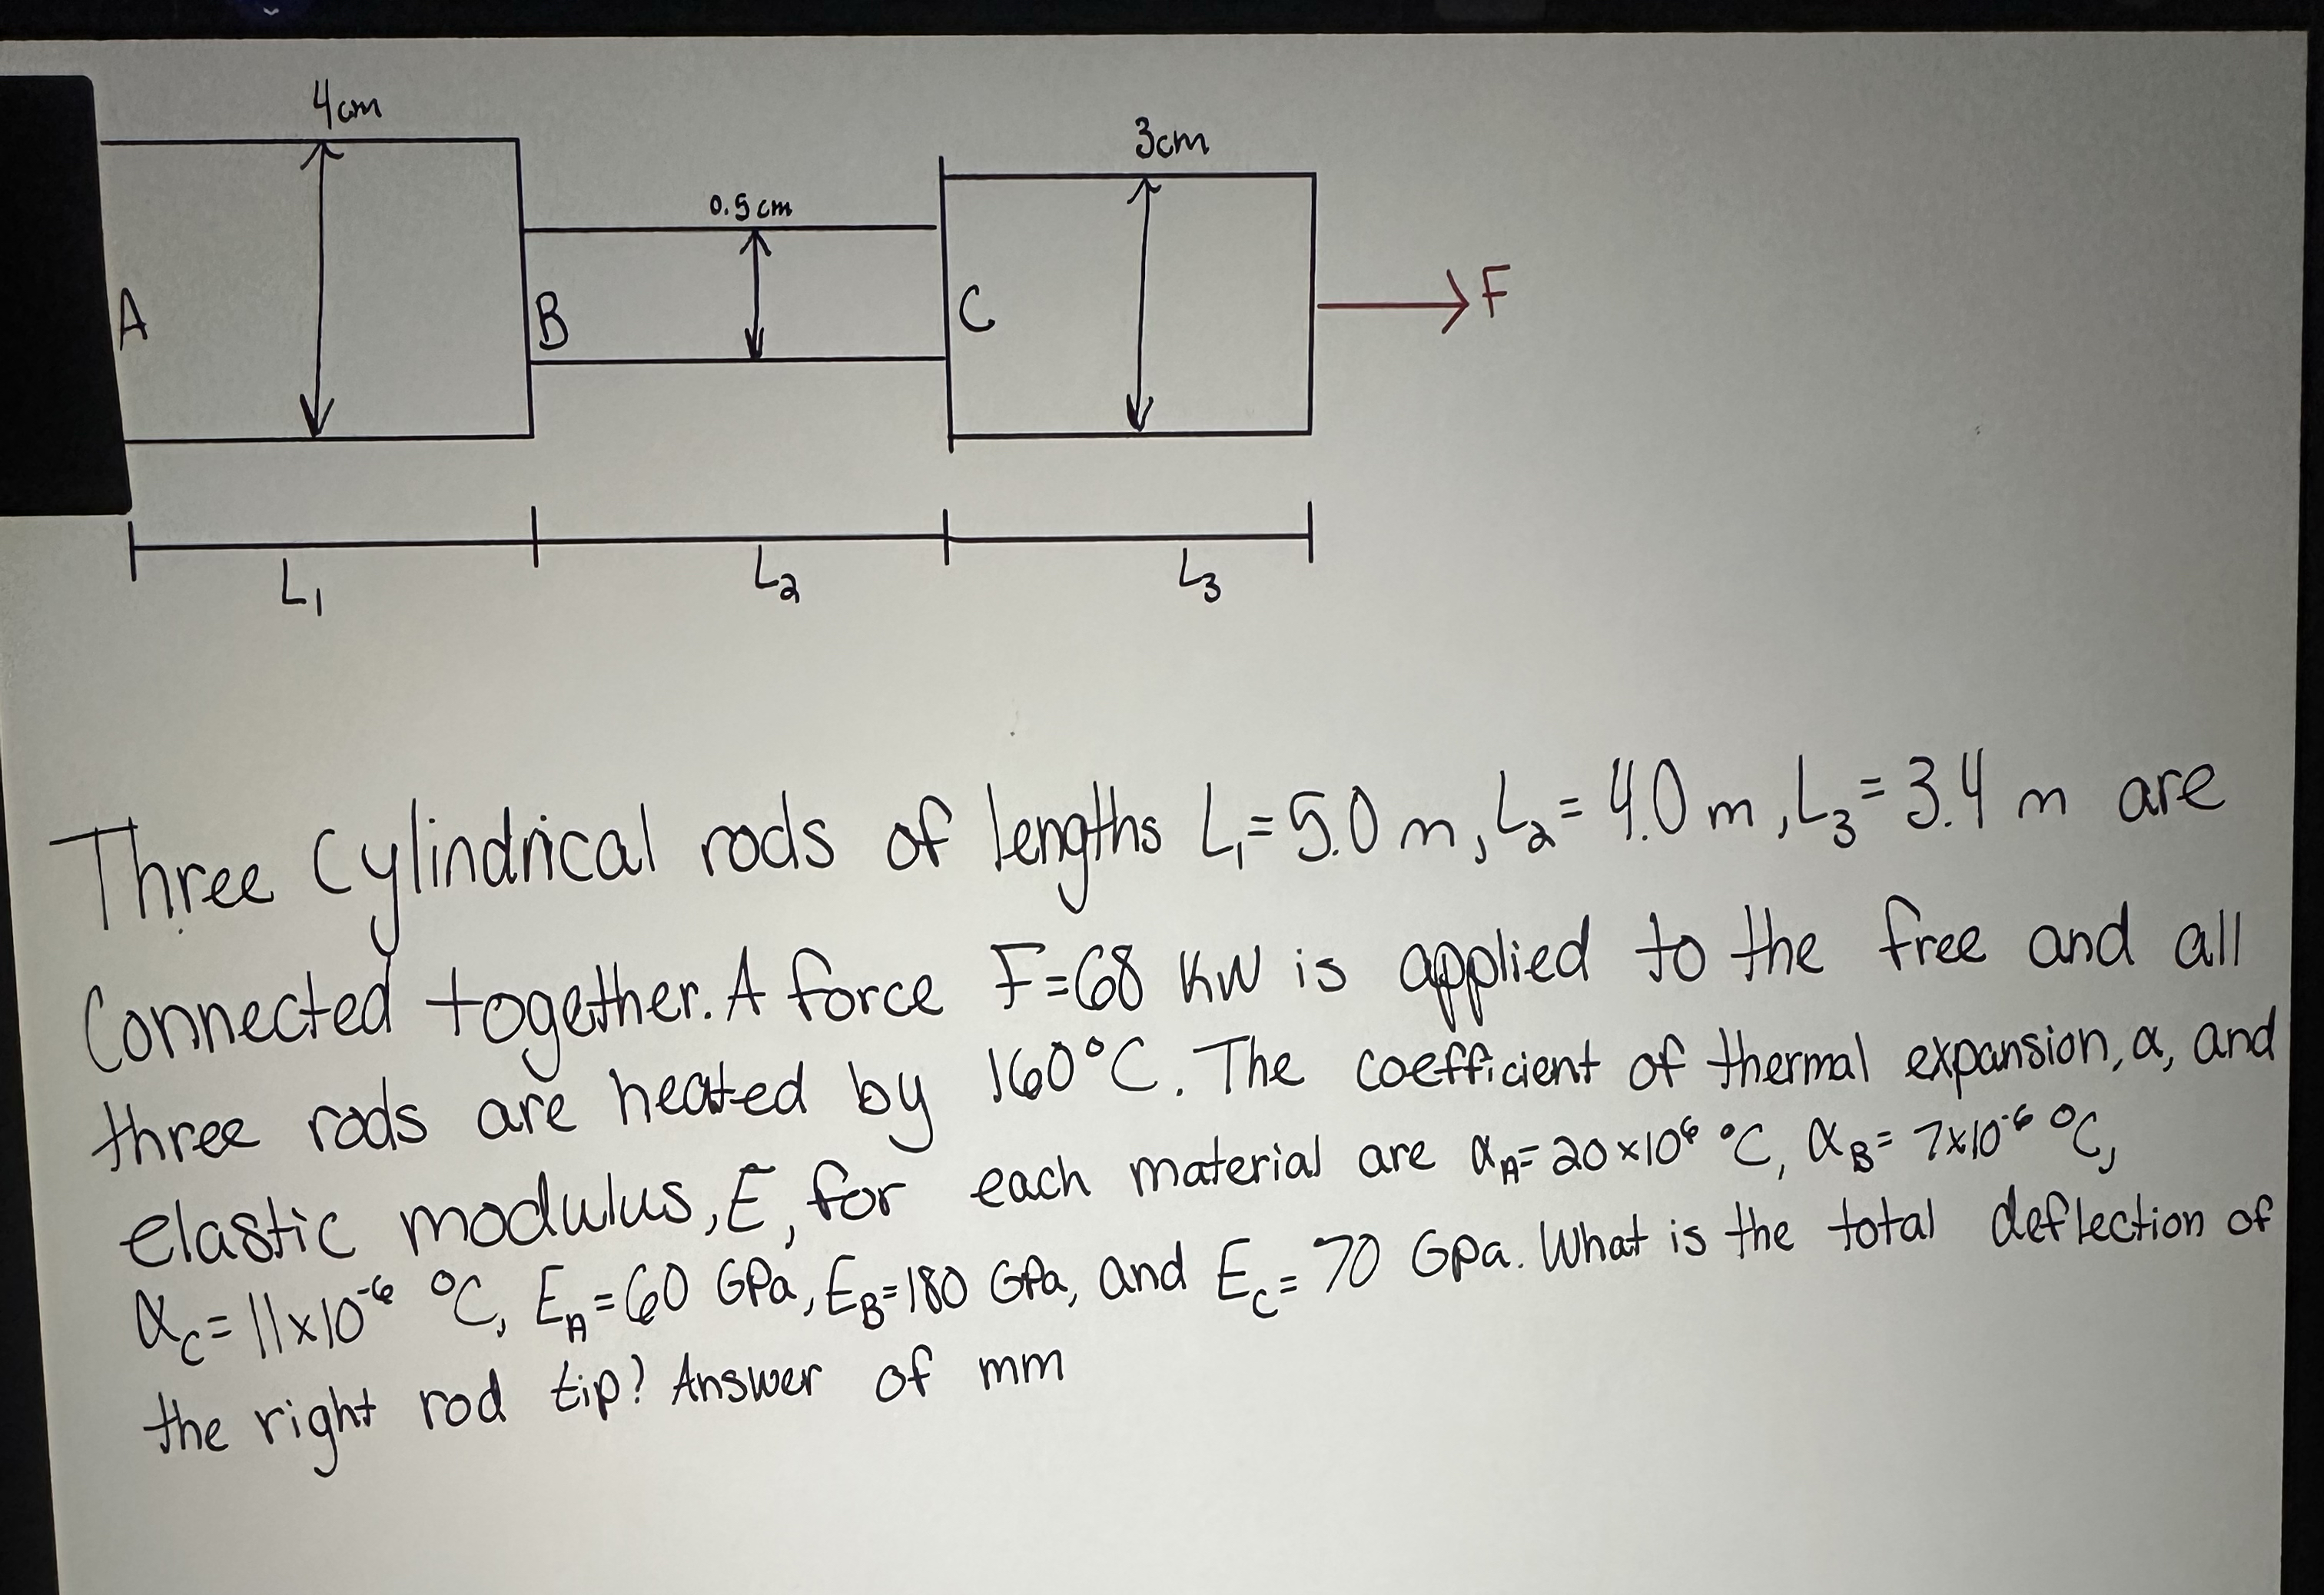 4cm
3cm
0.5cm
F
A
B
C
L₁
L₂
L₃
Three Cylindrical rods of lengths L₁=5.0 m, L₂= 4.0 m, L₃= 3.4 m are
Connected together. A force F=68 KW is applied to the free and all
three rods are heated by 160°C. The coefficient of thermal expansion, α, and
elastic modulus, E, for each material are α_A=20×10⁶ °C, α_B= 7×10⁻⁶ °C,
α_C= 11×10⁻⁶ °C, E_A=60 GPa, E_B=180 GPa, and E_C= 70 Gpa. What is the total deflection of
the right rod tip? Answer of mm